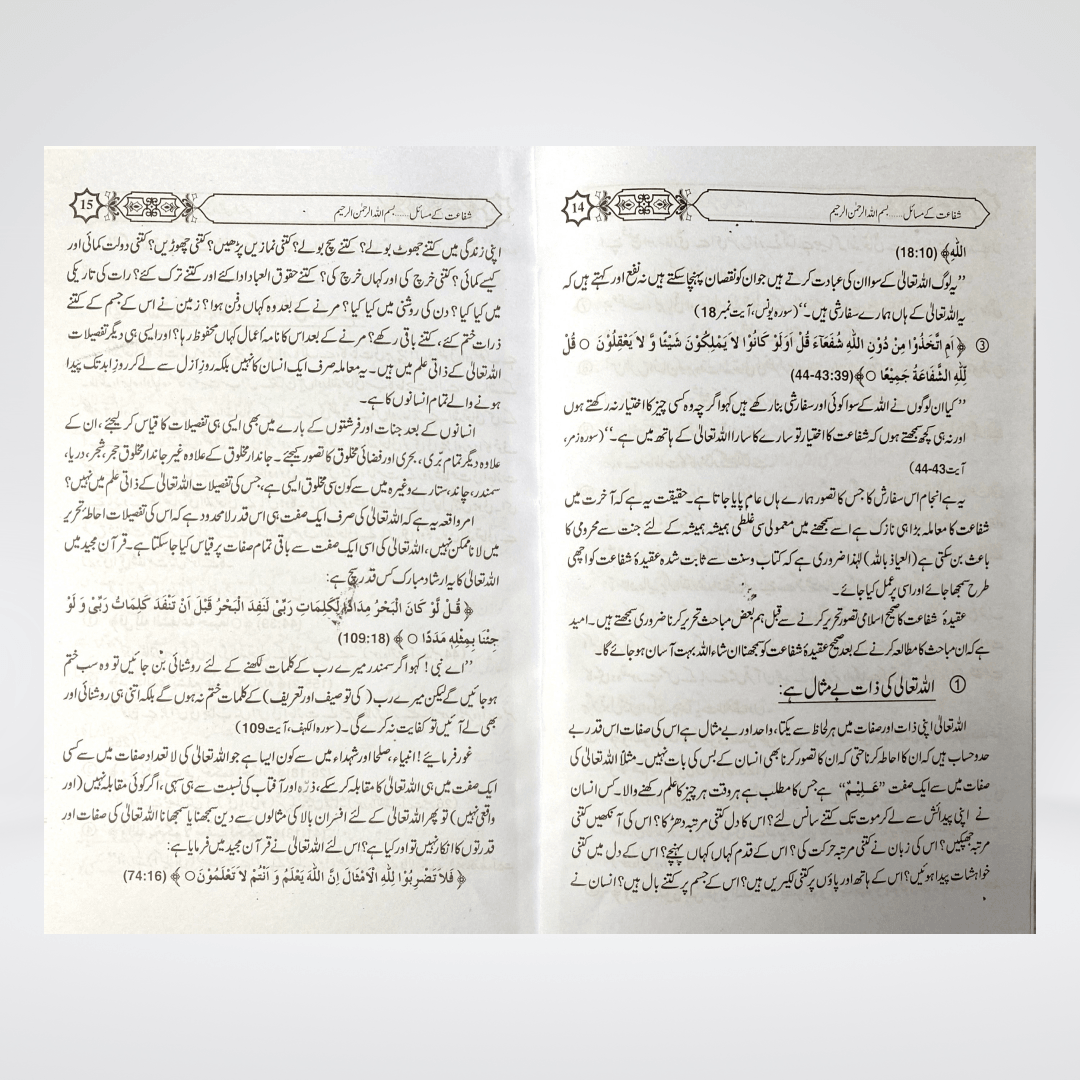 14
شفاعت کے مسائل......بسم اللہ الرحمٰن الرحیم
اللّٰهِ﴾ (18:10)
’’یہ لوگ اللہ تعالیٰ کے سوا ان کی عبادت کرتے ہیں جو ان کو نقصان پہنچا سکتے ہیں نہ نفع اور کہتے ہیں کہ
یہ اللہ تعالیٰ کے ہاں ہمارے سفارشی ہیں۔‘‘ (سورہ یونس، آیت نمبر 18)
③ ﴿ اَمِ اتَّخَذُوْا مِنْ دُوْنِ اللّٰهِ شُفَعَآءَ قُلْ اَوَلَوْ كَانُوْا لاَ يَمْلِكُوْنَ شَيْئًا وَّ لاَ يَعْقِلُوْنَ ○ قُلْ
لِلّٰهِ الشَّفَاعَةُ جَمِيْعًا ○﴾ (44-43:39)
’’ کیا ان لوگوں نے اللہ کے سوا کوئی اور سفارشی بنا رکھے ہیں کہو اگرچہ وہ کسی چیز کا اختیار نہ رکھتے ہوں
اور نہ ہی کچھ سمجھتے ہوں کہ شفاعت کا اختیار تو سارے کا سارا اللہ تعالیٰ کے ہاتھ میں ہے۔‘‘ (سورہ زمر،
آیت 43-44)
یہ ہے انجام اس سفارش کا جس کا تصور ہمارے ہاں عام پایا جاتا ہے۔ حقیقت یہ ہے کہ آخرت میں
شفاعت کا معاملہ بڑا ہی نازک ہے اسے سمجھنے میں معمولی سی غلطی ہمیشہ ہمیشہ کے لئے جنت سے محرومی کا
باعث بن سکتی ہے (العیاذ باللہ) لہٰذا ضروری ہے کہ کتاب وسنت سے ثابت شدہ عقیدۂ شفاعت کو اچھی
طرح سمجھا جائے اور اسی پر عمل کیا جائے۔
عقیدۂ شفاعت کا صحیح اسلامی تصور تحریر کرنے سے قبل ہم بعض مباحث تحریر کرنا ضروری سمجھتے ہیں۔ امید
ہے کہ ان مباحث کا مطالعہ کرنے کے بعد صحیح عقیدۂ شفاعت کو سمجھنا ان شاء اللہ بہت آسان ہو جائے گا۔
① اللہ تعالیٰ کی ذات بے مثال ہے:
اللہ تعالیٰ اپنی ذات اور صفات میں ہر لحاظ سے یکتا، واحد اور بے مثال ہے اس کی صفات اس قدر بے
حد و حساب ہیں کہ ان کا احاطہ کرنا حتی کہ ان کا تصور کرنا بھی انسان کے بس کی بات نہیں۔ مثلاً اللہ تعالیٰ کی
صفات میں سے ایک صفت ’’عَلِيْمٌ‘‘ ہے جس کا مطلب ہے ہر وقت ہر چیز کا علم رکھنے والا۔ کس انسان
نے اپنی پیدائش سے لے کر موت تک کتنے سانس لئے؟ اس کا دل کتنی مرتبہ دھڑکا؟ اس کی آنکھیں کتنی
مرتبہ جھپکیں؟ اس کی زبان نے کتنی مرتبہ حرکت کی؟ اس کے قدم کہاں کہاں پہنچے؟ اس کے دل میں کتنی
خواہشات پیدا ہوئیں؟ اس کے ہاتھ اور پاؤں پر کتنی لکیریں ہیں؟ اس کے جسم پر کتنے بال ہیں؟ انسان نے
15
شفاعت کے مسائل......بسم اللہ الرحمٰن الرحیم
اپنی زندگی میں کتنے جھوٹ بولے؟ کتنے سچ بولے؟ کتنی نمازیں پڑھیں؟ کتنی چھوڑیں؟ کتنی دولت کمائی اور
کیسے کمائی؟ کتنی خرچ کی اور کہاں خرچ کی؟ کتنے حقوق العباد ادا کئے اور کتنے ترک کئے؟ رات کی تاریکی
میں کیا کیا؟ دن کی روشنی میں کیا کیا؟ مرنے کے بعد وہ کہاں دفن ہوا؟ زمین نے اس کے جسم کے کتنے
ذرات ختم کئے، کتنے باقی رکھے؟ مرنے کے بعد اس کا نامہ اعمال کہاں محفوظ رہا؟ اور ایسی ہی دیگر تفصیلات
اللہ تعالیٰ کے ذاتی علم میں ہیں۔ یہ معاملہ صرف ایک انسان کا نہیں بلکہ روز ازل سے لے کر روز ابد تک پیدا
ہونے والے تمام انسانوں کا ہے۔
انسانوں کے بعد جنات اور فرشتوں کے بارے میں بھی ایسی ہی تفصیلات کا قیاس کر لیجئے، ان کے
علاوہ دیگر تمام بَرّی، بحری اور فضائی مخلوق کا تصور کیجئے۔ جاندار مخلوق کے علاوہ غیر جاندار مخلوق حجر، شجر، دریا،
سمندر، چاند، ستارے وغیرہ میں سے کون سی مخلوق ایسی ہے، جس کی تفصیلات اللہ تعالیٰ کے ذاتی علم میں نہیں؟
امر واقعہ یہ ہے کہ اللہ تعالیٰ کی صرف ایک صفت ہی اس قدر لامحدود ہے کہ اس کی تفصیلات احاطہ تحریر
میں لانا ممکن نہیں، اللہ تعالیٰ کی اسی ایک صفت سے باقی تمام صفات پر قیاس کیا جا سکتا ہے۔ قرآن مجید میں
اللہ تعالیٰ کا یہ ارشاد مبارک کس قدر سچ ہے:
﴿ قُلْ لَّوْ كَانَ الْبَحْرُ مِدَادًا لِّكَلِمَاتِ رَبِّىْ لَنَفِدَ الْبَحْرُ قَبْلَ اَنْ تَنْفَدَ كَلِمَاتُ رَبِّىْ وَ لَوْ
جِئْنَا بِمِثْلِهٖ مَدَدًا ○ ﴾ (109:18)
’’اے نبی! کہو اگر سمندر میرے رب کے کلمات لکھنے کے لئے روشنائی بن جائیں تو وہ سب ختم
ہو جائیں گے لیکن میرے رب (کی توصیف اور تعریف) کے کلمات ختم نہ ہوں گے بلکہ اتنی ہی روشنائی اور
بھی لے آئیں تو کفایت نہ کرے گی۔ (سورہ الکہف، آیت 109)
غور فرمائیے! انبیاء، صلحا اور شہداء میں سے کون ایسا ہے جو اللہ تعالیٰ کی لا تعداد صفات میں سے کسی
ایک صفت میں ہی اللہ تعالیٰ کا مقابلہ کر سکے، ذرّہ اور آفتاب کی نسبت سے ہی سہی، اگر کوئی مقابلہ نہیں (اور
واقعی نہیں) تو پھر اللہ تعالیٰ کے لئے افسران بالا کی مثالوں سے دین سمجھنا یا سمجھانا اللہ تعالیٰ کی صفات اور
قدرتوں کا انکار نہیں تو اور کیا ہے؟ اس لئے اللہ تعالیٰ نے قرآن مجید میں فرمایا ہے:
﴿ فَلاَ تَضْرِبُوْا لِلّٰهِ الْاَمْثَالَ اِنَّ اللّٰهَ يَعْلَمُ وَ اَنْتُمْ لاَ تَعْلَمُوْنَ○ ﴾ (74:16)